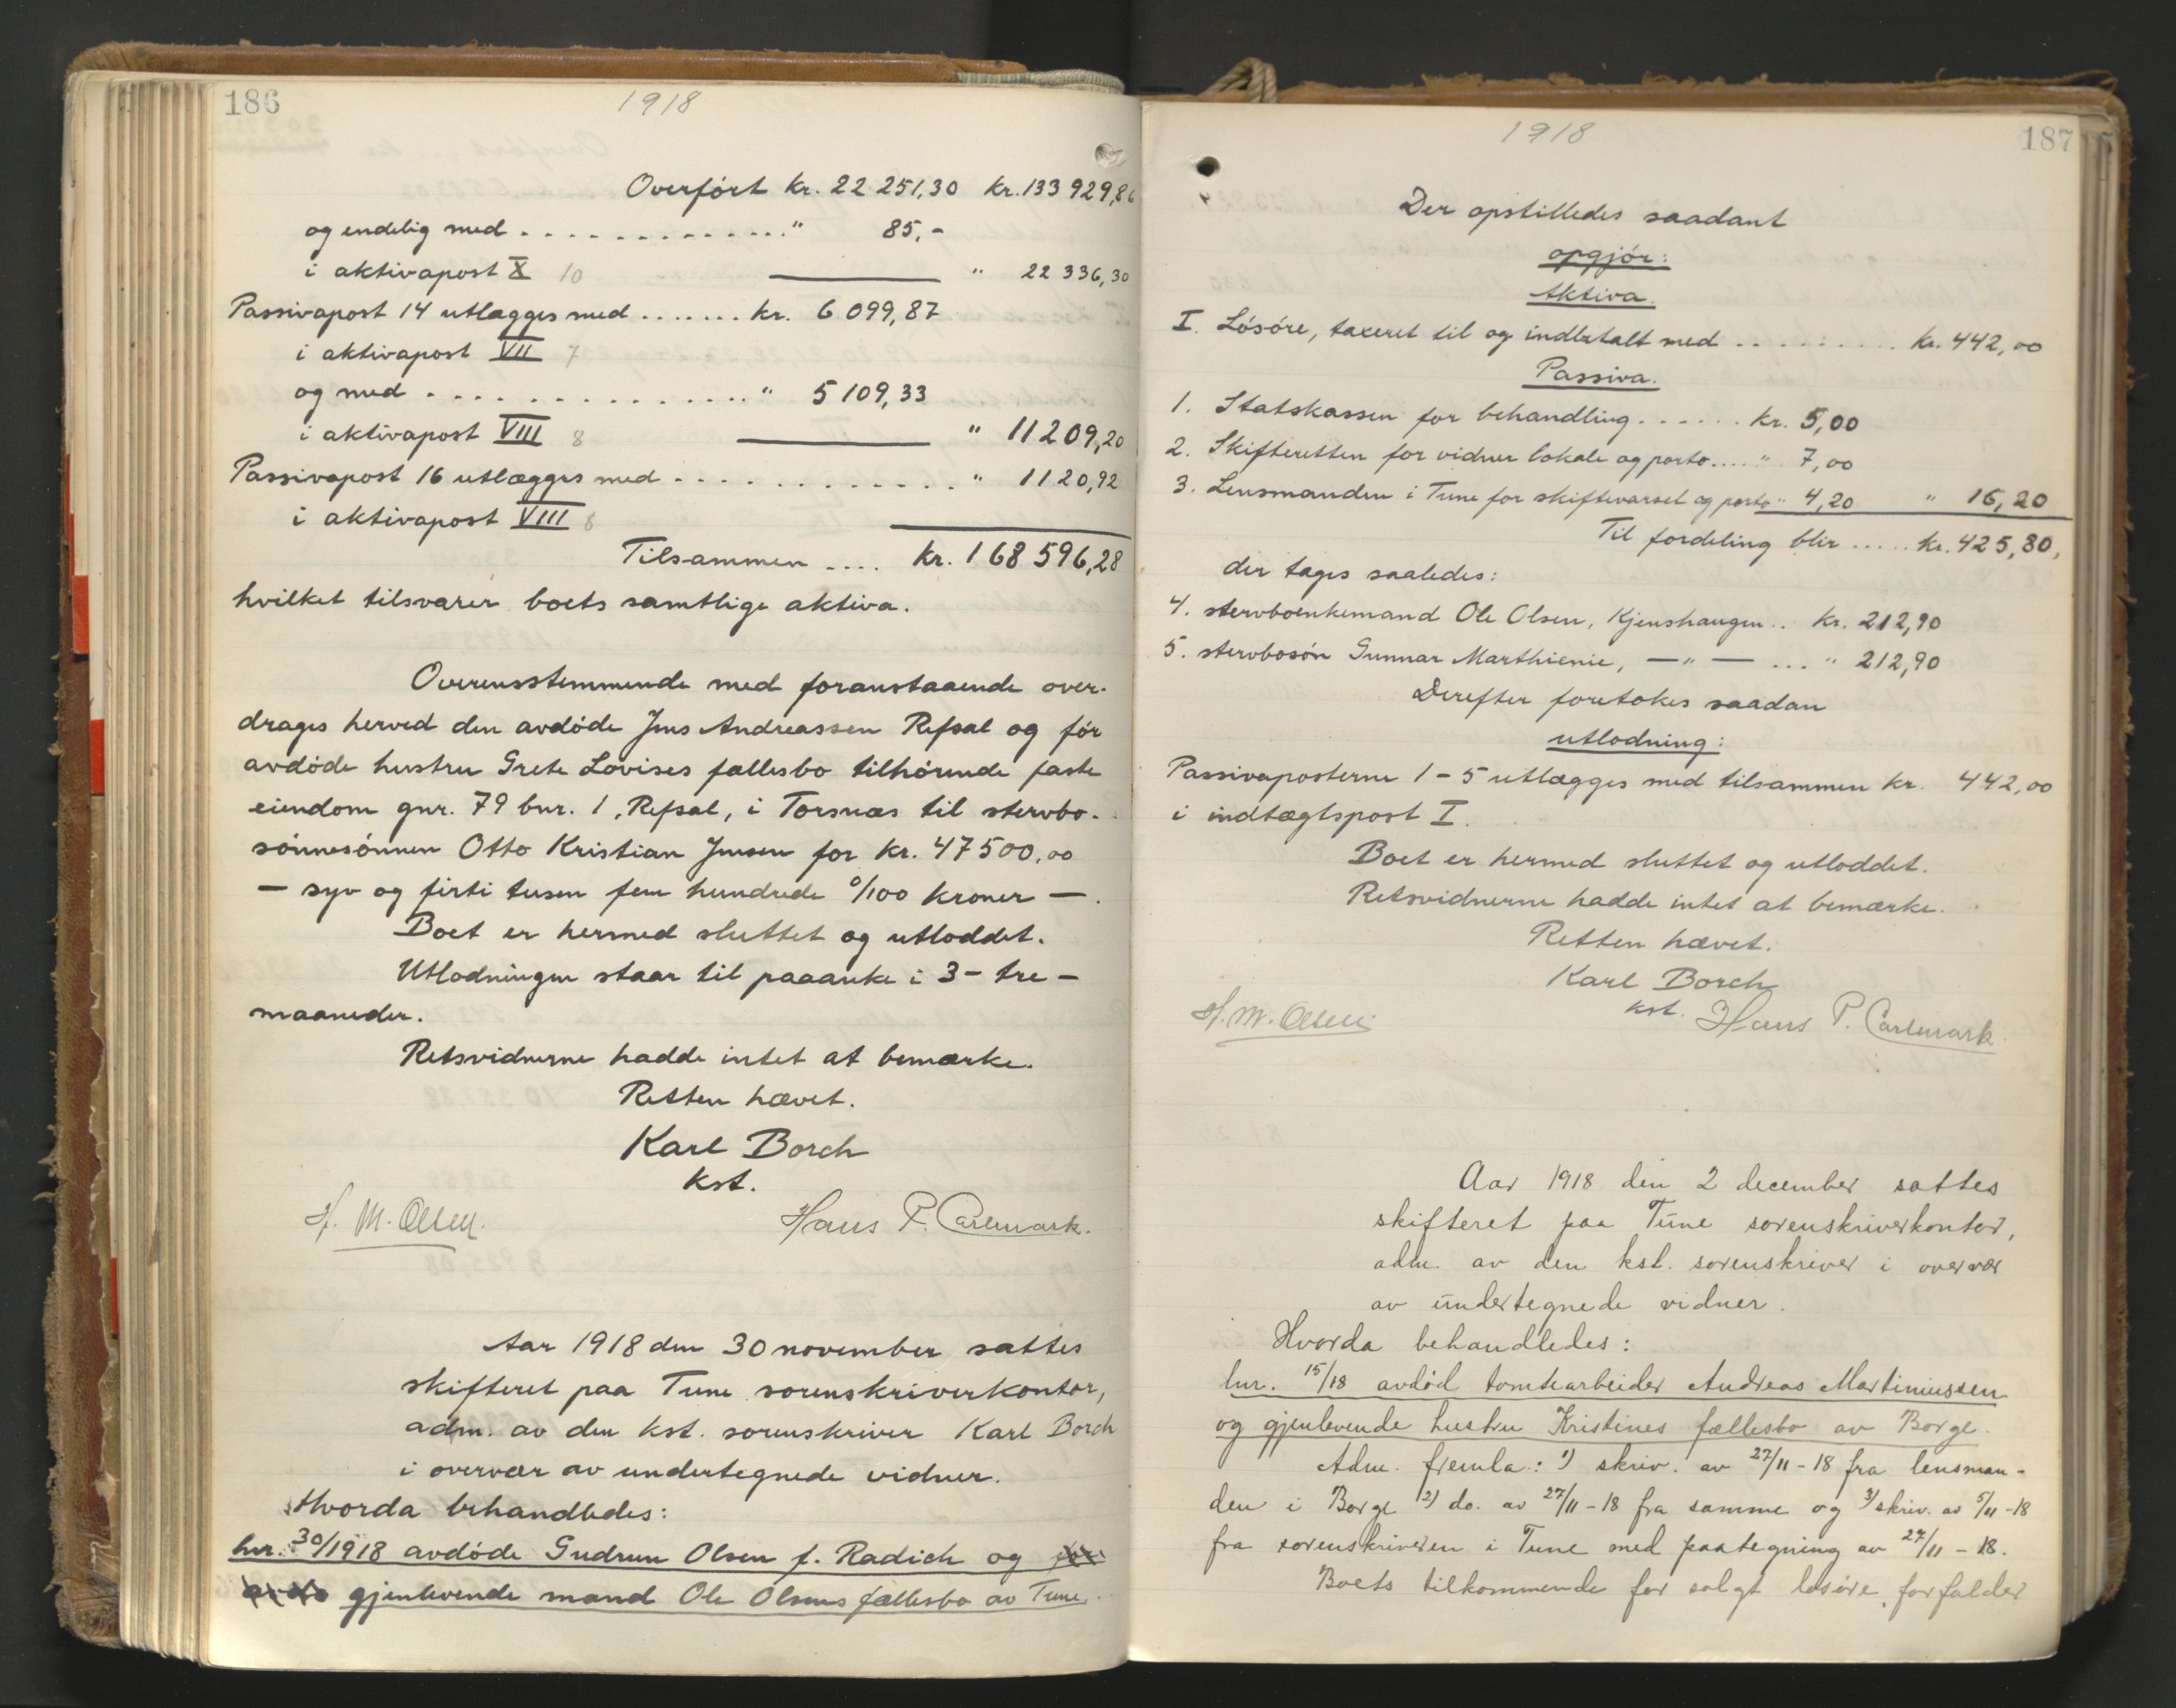 186
1918
Overført kr. 22 251,30 kr. 133 929,86
og endelig med . . . . . . . . . . . . . . " 85,-
i aktivapost X 10 " 22 336,30
Passivapost 14 utlægges med ....... kr. 6 099,87
i aktivapost VII 7
og med . . . . . . . . . . . . . . . . " 5 109,33
i aktivapost VIII 8 " 11 209,20
Passivapost 16 utlægges med . . . . . . . . . . . . . " 1 120,92
i aktivapost VIII 8
Tilsammen .... kr. 168 596,28
hvilket tilsvarer boets samtlige aktiva.
Overensstemmende med foranstaaende over-
drages herved den avdøde Jens Andreassen Refsal og før
avdøde hustru Grete Lovises fællesbo tilhørende faste
eiendom gnr. 79 bnr. 1, Refsal, i Torsnæs til stervbo-
sønnesønnen Otto Kristian Jensen for kr. 47500,00
— syv og firti tusen fem hundrede 0/100 kroner —.
Boet er hermed sluttet og utloddet.
Utlodningen staar til paaanke i 3 - tre -
maaneder.
Retsvidnerne hadde intet at bemærke.
Retten hævet.
Karl Borch
kst.
H. M. Olsen. Hans P. Carlmark.
Aar 1918 den 30 november sattes
skifteret paa Tune sorenskriverkontor,
adm. av den kst. sorenskriver Karl Borch
i overvær av undertegnede vidner.
Hvorda behandledes:
lnr. 30/1918 avdøde Gudrun Olsen f. Radich og før
avdø gjenlevende mand Ole Olsens fællesbo av Tune.
1918
187
Der opstilledes saadant
opgjør:
Aktiva.
I. Løsøre, taxeret til og indbetalt med . . . . . . . . . kr. 442,00
Passiva.
1. Statskassen for behandling . . . . . . kr. 5,00
2. Skifteretten for vidner lokale og porto .... " 7,00
3. Lensmanden i Tune for skiftevarsel og porto " 4,20 " 16,20
Til fordeling blir ..... kr. 425,80,
der tages saaledes:
4. stervboenkemand Ole Olsen, Kjenshaugen .. kr. 212,90
5. stervbosøn Gunnar Marthienie, — " — ... " 212,90
Derefter foretokes saadan
utlodning:
Passivaposterne 1-5 utlægges med tilsammen kr. 442,00
i indtægtspost I.
Boet er hermed sluttet og utloddet.
Retsvidnerne hadde intet at bemærke.
Retten hævet.
Karl Borch
kst.
H. M. Olsen Hans P. Carlmark.
Aar 1918 den 2 december sattes
skifteret paa Tune sorenskriverkontor,
adm. av den kst. sorenskriver i overvær
av undertegnede vidner.
Hvorda behandledes:
lnr. 15/18 avdød tomtearbeider Andreas Martiniussen
og gjenlevende hustru Kristines fællesbo av Borge.
Adm. fremla: 1) skriv. av 27/11-18 fra lensman-
den i Borge 2) do. av 27/11-18 fra samme og 3) skriv. av 5/11-18
fra sorenskriveren i Tune med paategning av 27/11-18.
Boets tilkommende for solgt løsøre, forfalder